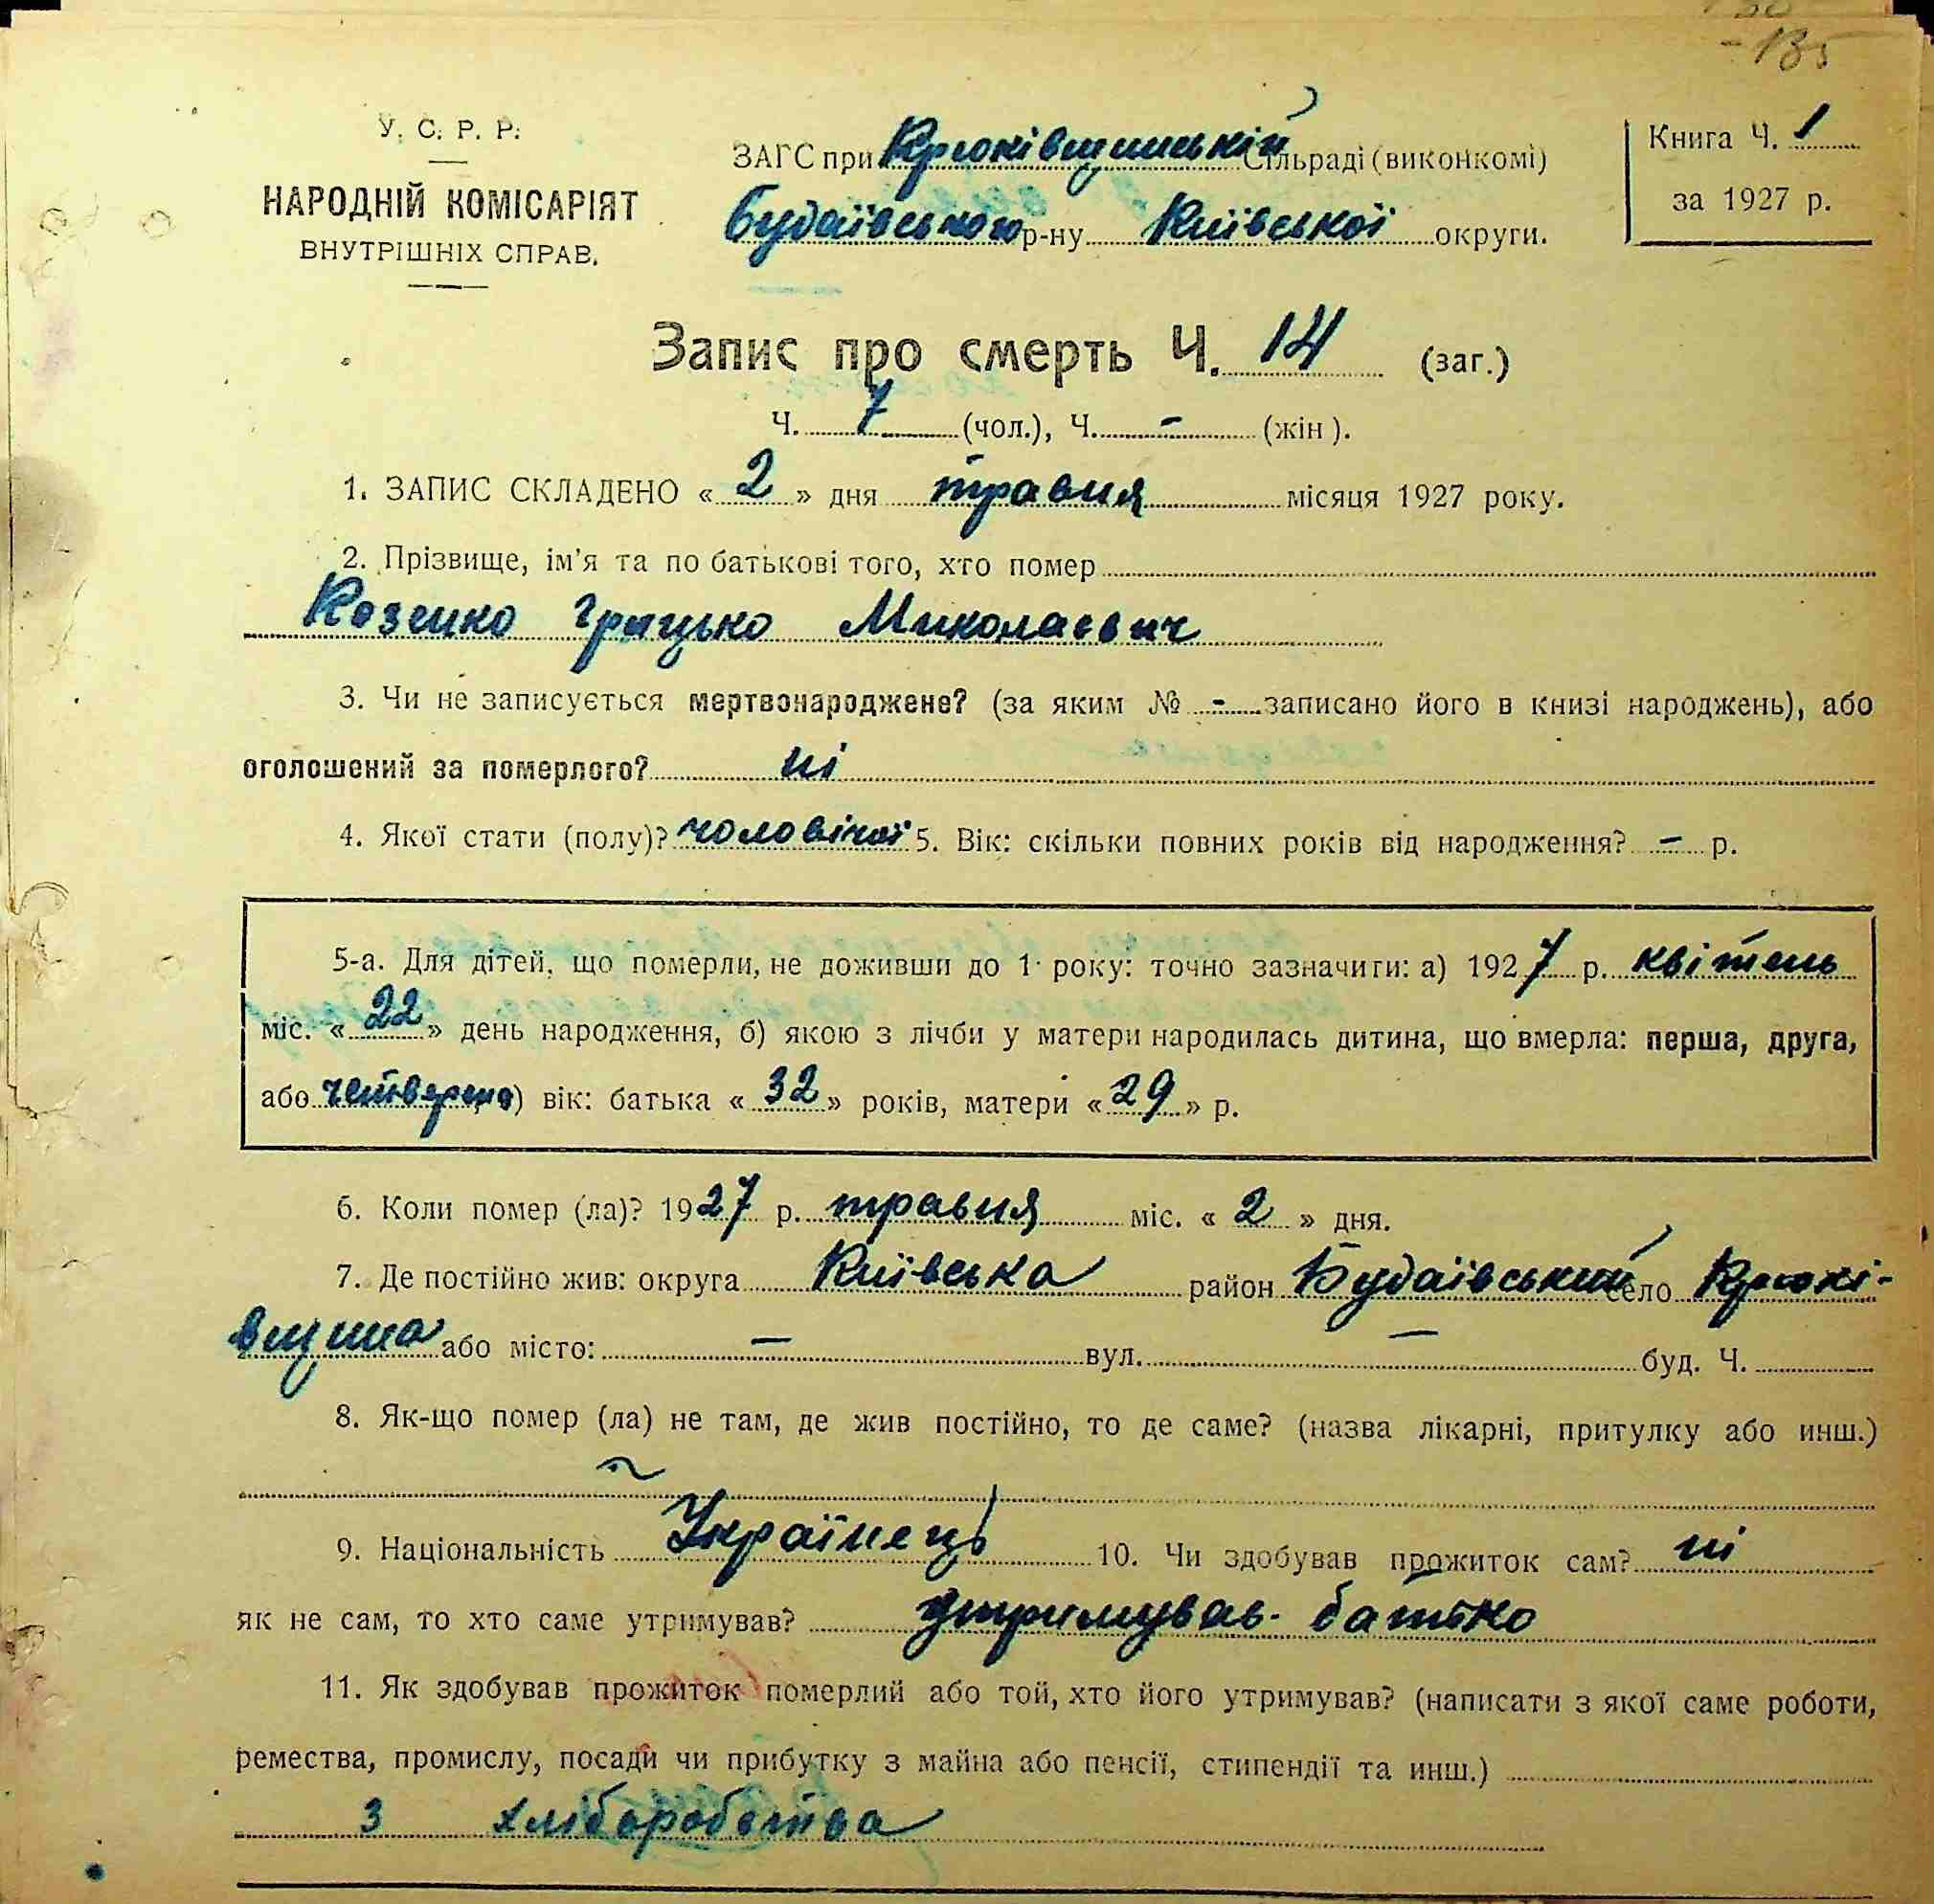 - 135
У. С. Р. Р.
НАРОДНІЙ КОМІСАРІЯТ
ВНУТРІШНІХ СПРАВ.
ЗАГС при Крюківщинській Сільраді (виконкомі)
Будаївського р-ну Київської округи.
Книга Ч. 1
за 1927 р.
Запис про смерть Ч. 14 (заг.)
Ч. 7 (чол.), Ч. - (жін).
1. ЗАПИС СКЛАДЕНО « 2 » дня травня місяця 1927 року.
2. Прізвище, ім'я та по батькові того, хто помер
Козенко Грицько Миколаєвич
3. Чи не записується мертвонароджене? (за яким № - записано його в книзі народжень), або
оголошений за померлого? ні
4. Якої стати (полу)? чоловічої 5. Вік: скільки повних років від народження? - р.
5-а. Для дітей, що померли, не доживши до 1 року: точно зазначити: а) 1927 р. квітень
міс. « 22 » день народження, б) якою з лічби у матери народилась дитина, що вмерла: перша, друга,
або четверта) вік: батька « 32 » років, матери « 29 » р.
6. Коли помер (ла)? 1927 р. травня міс. « 2 » дня.
7. Де постійно жив: округа Київська район Будаївський село Крюкі-
вщина або місто: — вул. — буд. Ч.
8. Як-що помер (ла) не там, де жив постійно, то де саме? (назва лікарні, притулку або инш.)
~
9. Національність Українець 10. Чи здобував прожиток сам? ні
як не сам, то хто саме утримував? утримував батько
11. Як здобував прожиток померлий або той, хто його утримував? (написати з якої саме роботи,
ремества, промислу, посади чи прибутку з майна або пенсії, стипендії та инш.)
З хліборобства